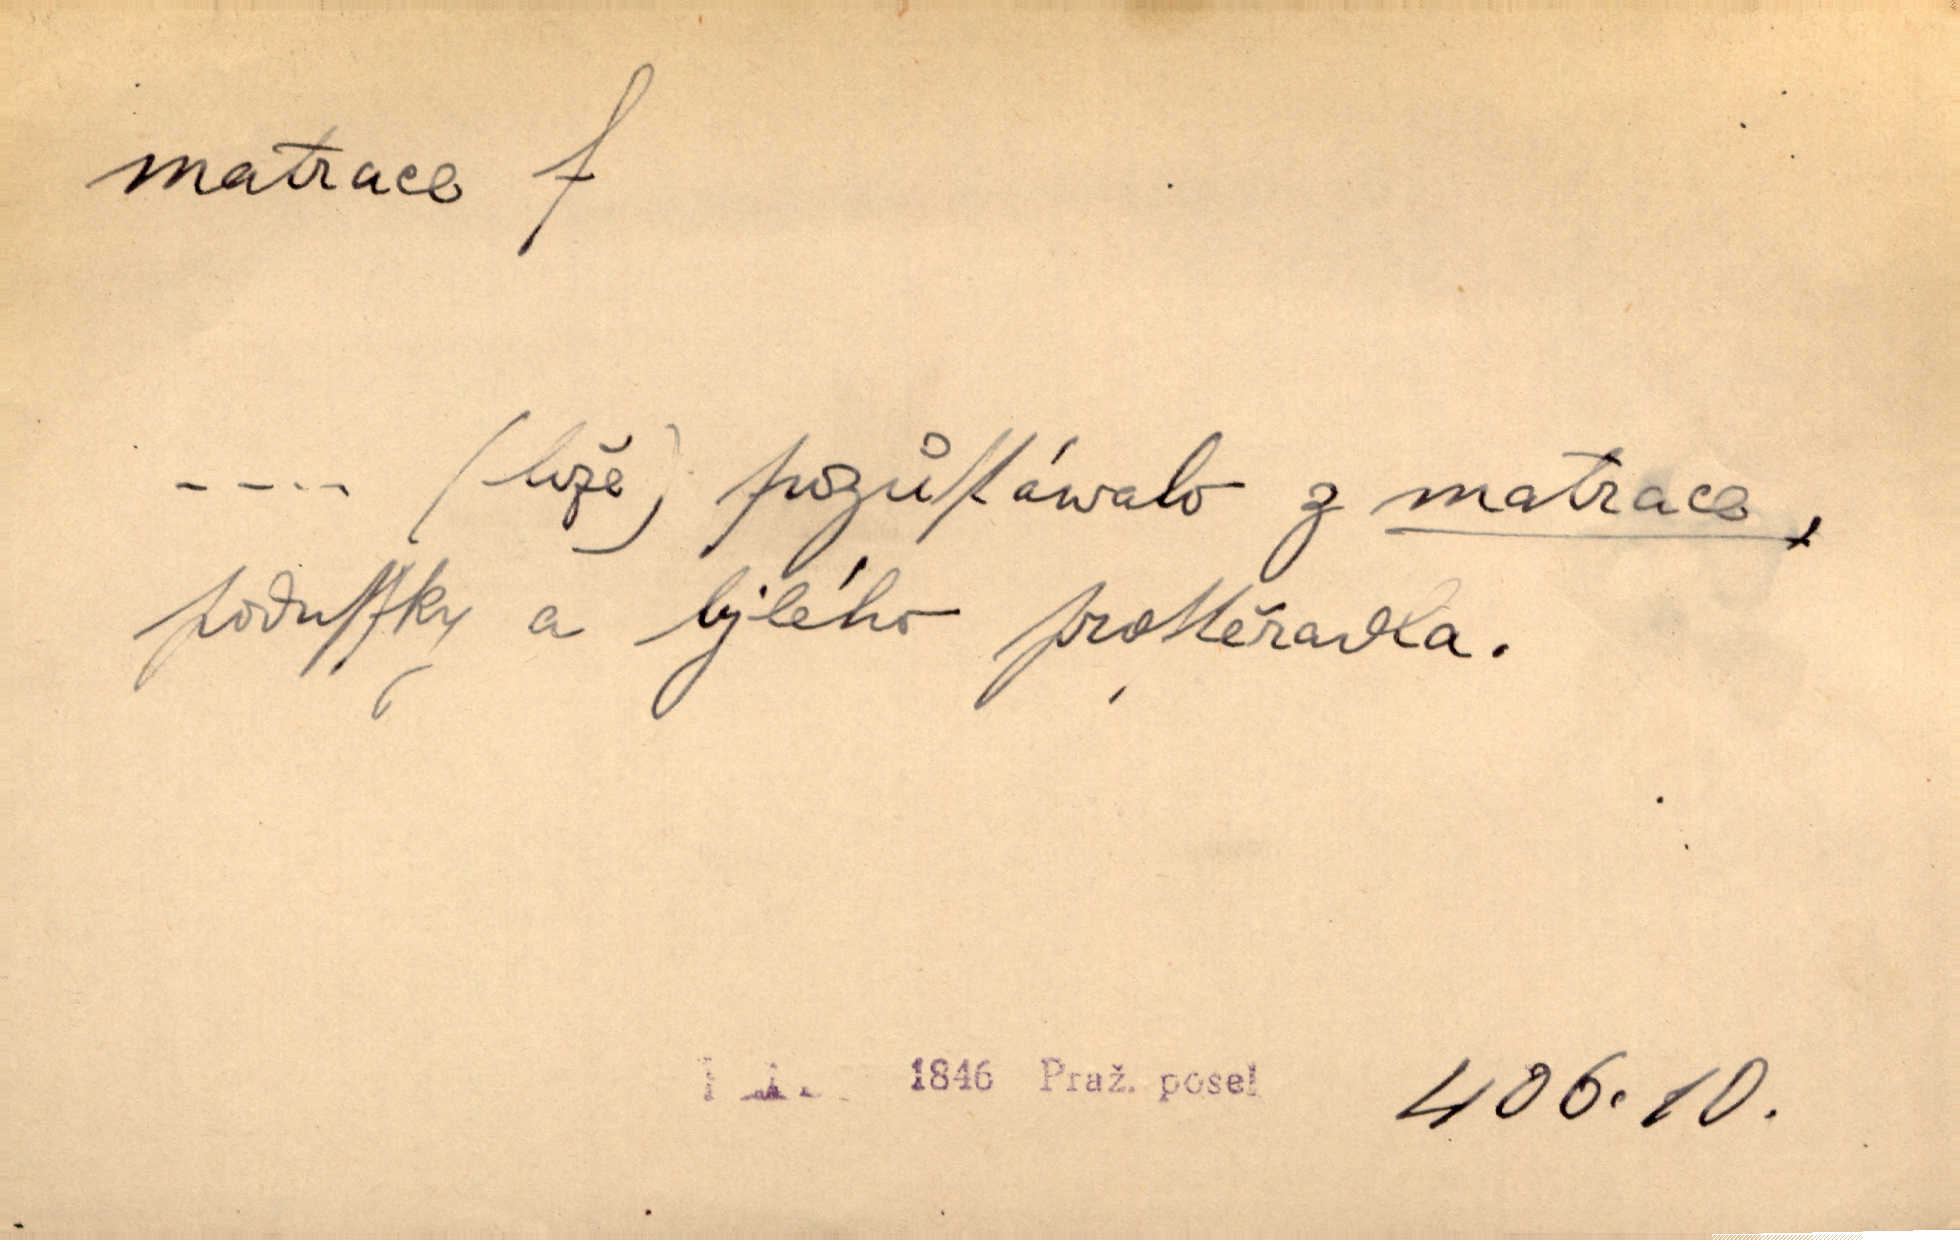 matrace f
---- (lože) pozůſtáwalo z matrace,
poduſſky a bjlého proſtěradla.
1846 Praž. posel 406.10.